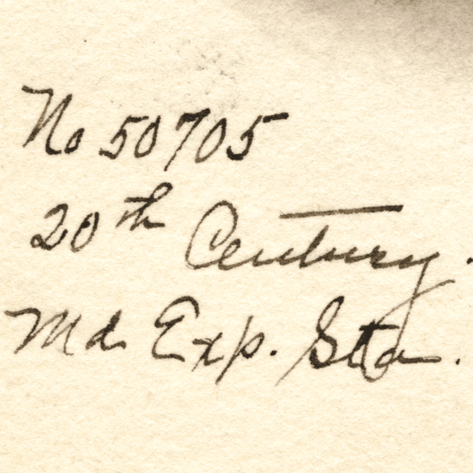 No 50705
20th Century.
Md. Exp. Sta.